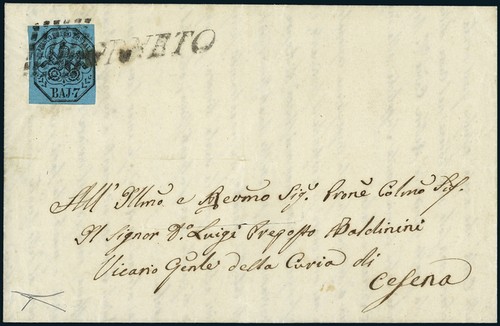 BAJ·7
RNETO
All' Illmo e Revmo Sig. Prone Colmo Sig.
Il Signor Dn. Luigi Preposto Baldinini
Vicario Gente della Curia di
Cesena